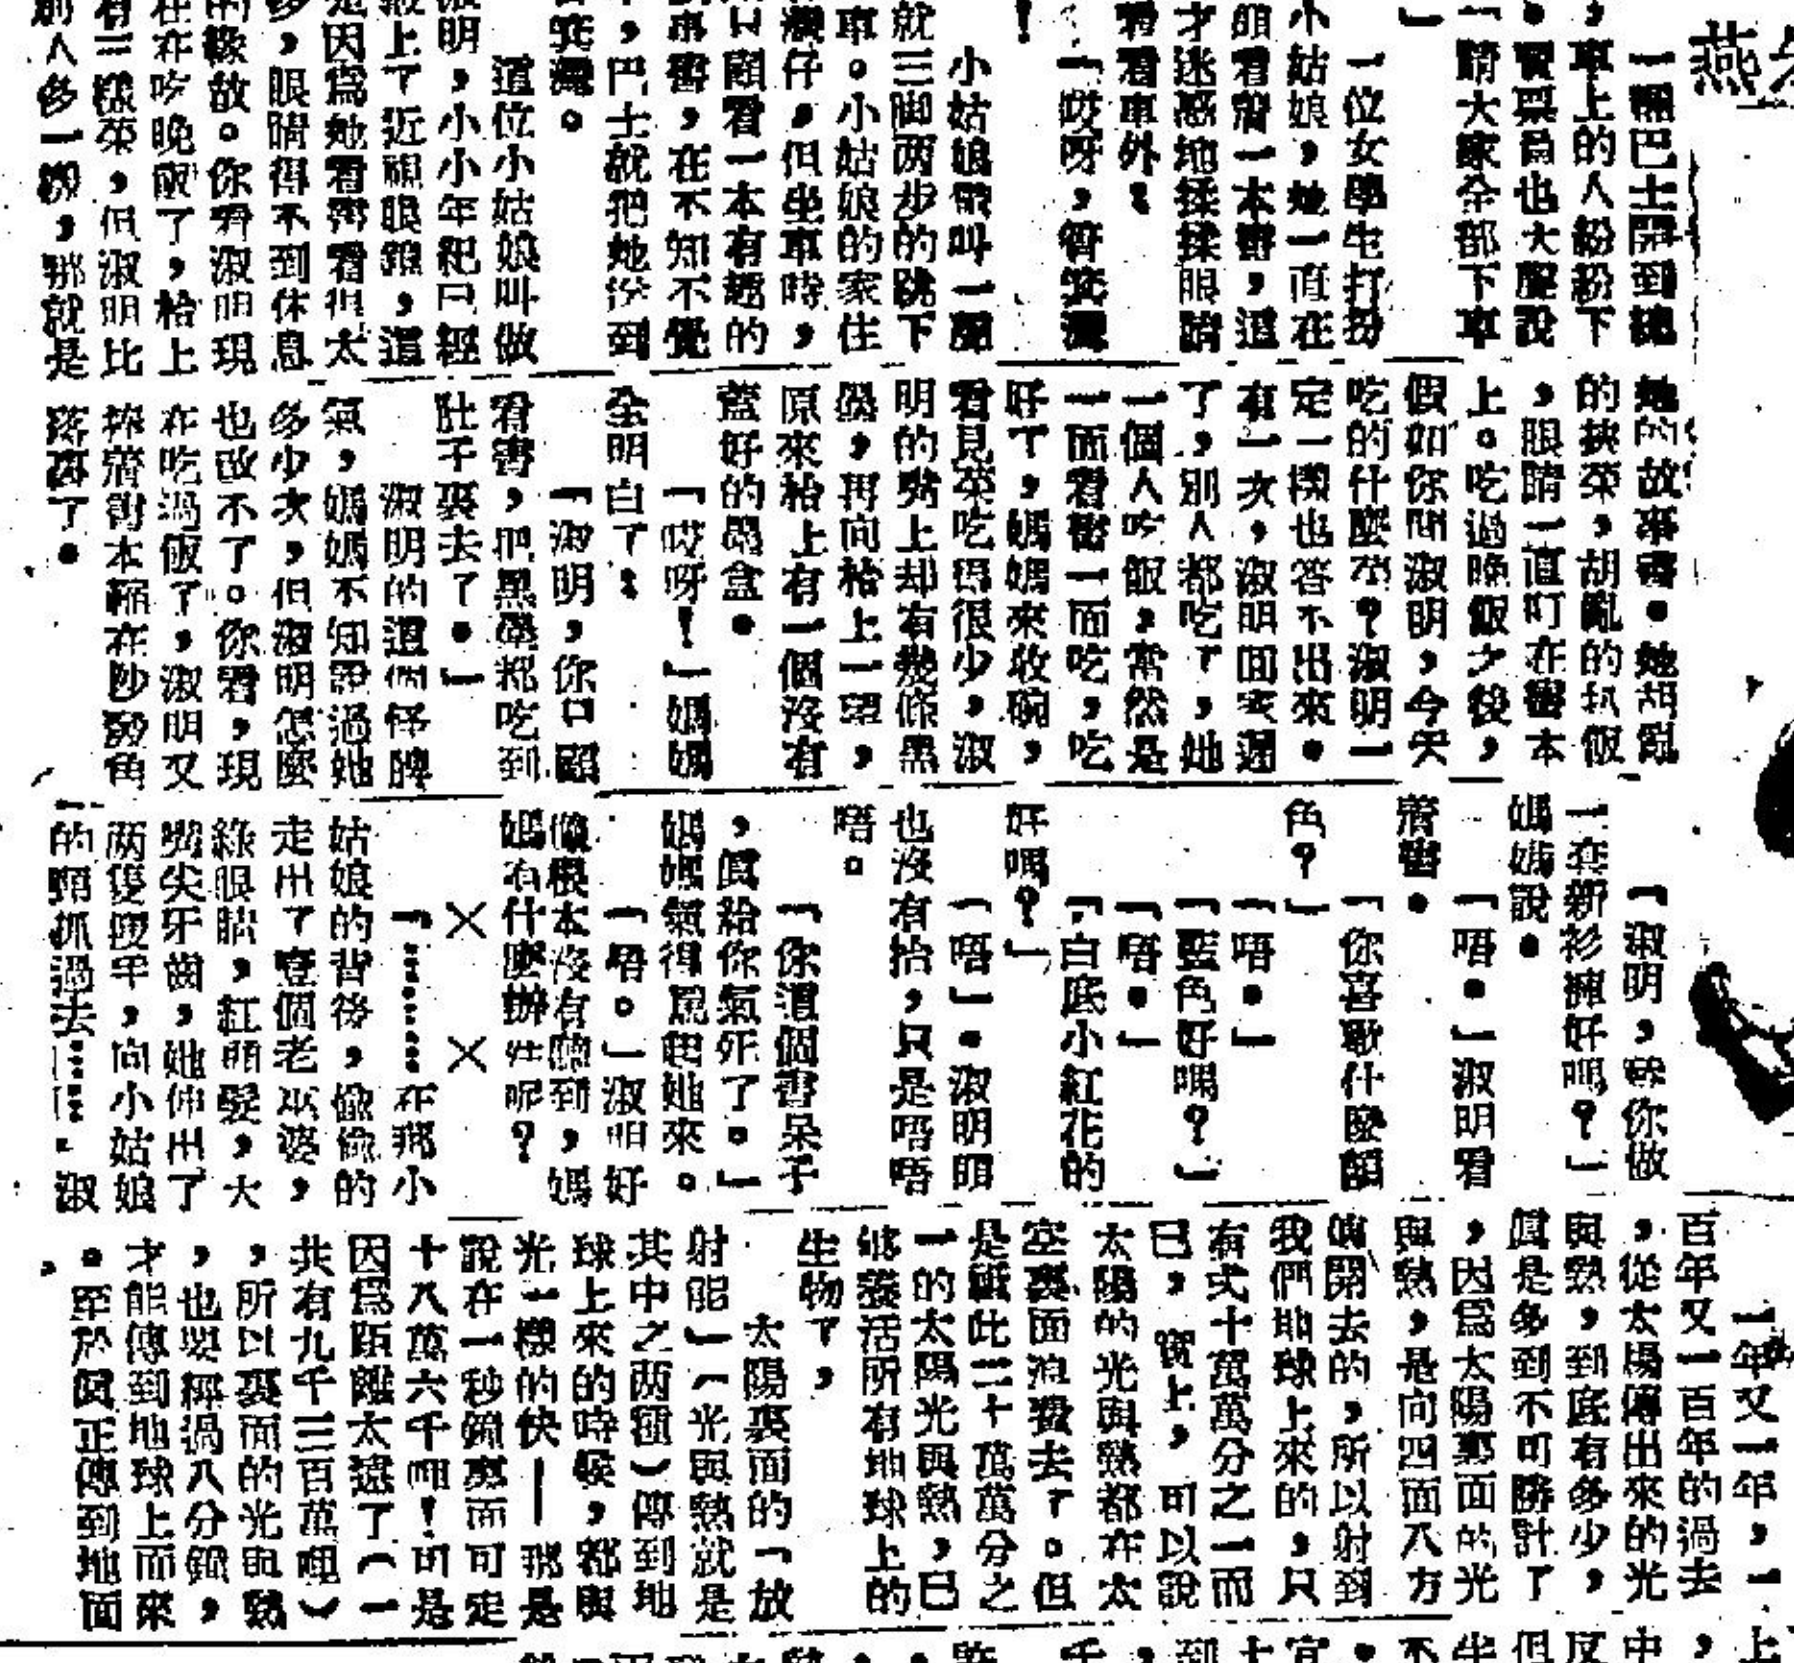 一輛巴士開到總
，車上的人紛紛下
。賣票員也大聲說
「請大家全部下車
」
一位女學生打扮
小姑娘，她一直在
頭看着一本書，這
才迷惑地揉揉眼睛
看看車外：
「哎呀，筲箕灣
！
小姑娘驚叫一聲
就三脚两步的跳下
車。小姑娘的家住
灣仔，但坐車時，
只顧看一本有趣的
事書，在不知不覺
，巴士就把她送到
箕灣。
這位小姑娘叫做
淑明，小小年紀已經
戴上了近視眼鏡，這
是因爲她看書看得太
多，眼睛得不到休息
的緣故。你看淑明現
在在吃晚飯了，枱上
有三樣菜，但淑明比
別人多一樣，那就是
她的故事書。她胡亂
的挾菜，胡亂的扒飯
，眼睛一直盯在書本
上。吃過晚飯之後，
假如你問淑明，今天
吃的什麼菜？淑明一
定一樣也答不出來。
有一次，淑明回家遲
了，別人都吃了，她
一個人吃飯，當然是
一面看書一面吃，吃
好了，媽媽來收碗，
看見菜吃得很少，淑
明的嘴上却有幾條黑
，再向枱上一望，
原來枱上有一個沒有
蓋好的墨盒。
「哎呀！」媽媽
全明白了：
「淑明，你只顧
看書，把黑墨都吃到
肚子裏去了。」
淑明的這個怪脾
氣，媽媽不知說過她
多少次，但淑明怎麼
也改不了。你看，現
在吃過飯了，淑明又
捧着書本躲在沙發角
落裏了。
「淑明，替你做
一套新衫褲好嗎？」
媽媽說。
「唔。」淑明看
着書。
「你喜歡什麼顏
色？」
「唔。」
「藍色好嗎？」
「唔。」
「白底小紅花的
好嗎？」
「唔」。淑明頭
也沒有抬，只是唔唔
唔。
「你這個書呆子
，眞給你氣死了。」
媽媽氣得罵起她來。
「唔。」淑明好
像根本沒有聽到，媽
媽有什麼辦法呢？
× ×
「………在那小
姑娘的背後，偸偸的
走出了壹個老巫婆，
綠眼睛，紅頭髮，大
嘴尖牙齒，她伸出了
两隻瘦手，向小姑娘
的頸抓過去……」淑
一年又一年，一
百年又一百年的過去
，從太陽傳出來的光
與熱，到底有多少，
眞是多到不可勝計了
，因爲太陽裏面的光
與熱，是向四面八方
噴開去的，所以射到
我們地球上來的，只
有弍十萬萬分之一而
已，實上，可以說
太陽的光與熱都在太
空裏面浪費去了。但
是祗此二十萬萬分之
一的太陽光與熱，已
够養活所有地球上的
生物了，
太陽裏面的「放
射能」（光與熱就是
其中之两種）傳到地
球上來的時候，都與
光一樣的快——那是
說在一秒鐘裏面可走
十八萬六千哩！可是
因爲距離太遠了（一
共有九千三百萬哩）
，所以裏面的光與熱
，也要經過八分鐘，
才能傳到地球上面來
。至於眞正傳到地面